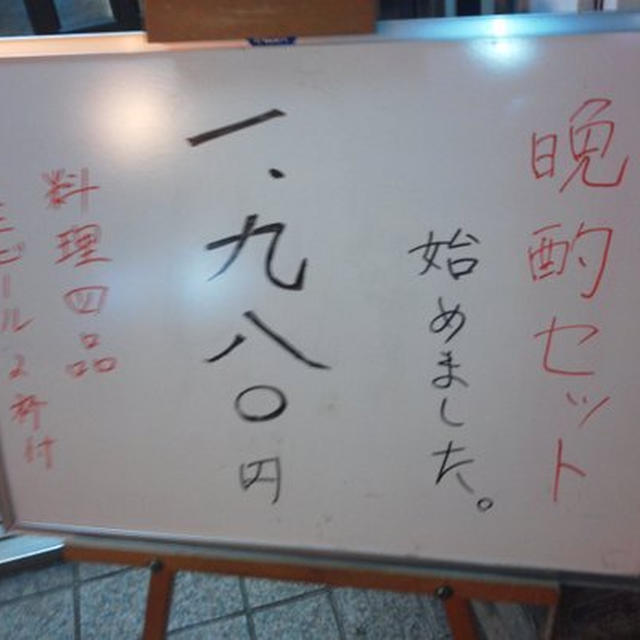 晩酌セット
始めました。
一、九八〇円
料理四品
生ビール2杯付